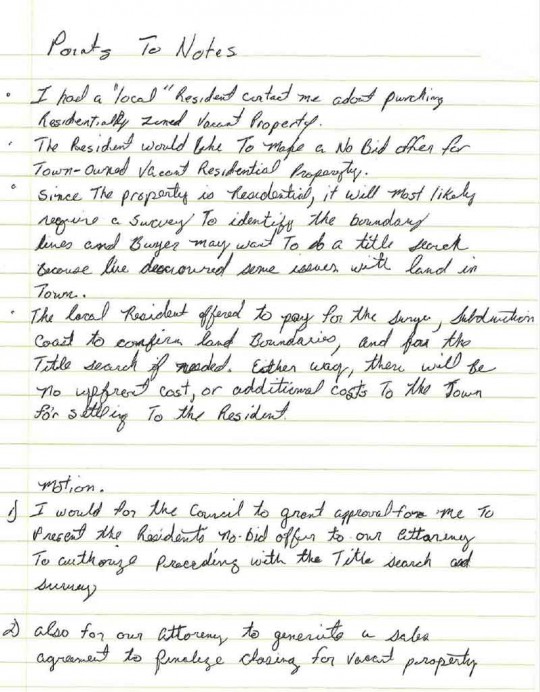 Points To Notes
• I had a "local" Resident contact me adout purching
Residentially zoned Vacant Property.
• The Resident would like To Make a No Bid offer for
Town-Owned Vacant Residential Property.
• Since The property is Residential, it will Most likely
require a Survey To identify the boundary
lines and Buyer may want To do a title search
Because live descovured some issues with land in
Town.
• The local Resident offered to pay for the Survey, Subdivition
Coast to confirm land Boundaries, and for the
Title search if needed. Either way, there will be
No upfront cost, or additional costs To the Town
For Selling To the Resident.
Motion.
1) I would for the Council to grant approval for me To
Present the Residents No-bid offer to our Attorney
To authorize Preceding with the Title search and
Survey
2) also for our Attorney to generate a sales
agreement to finalize closing for Vacant property